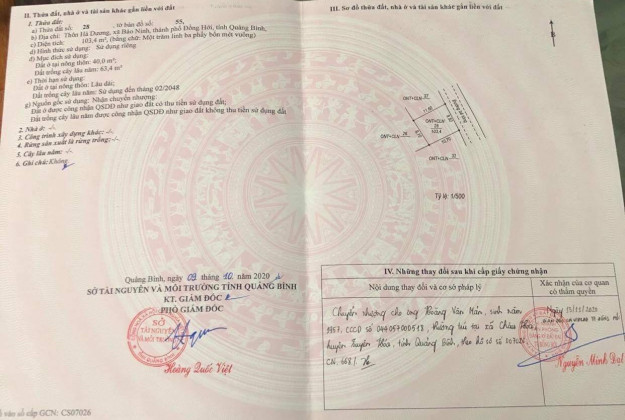 II. Thửa đất, nhà ở và tài sản khác gắn liền với đất
1. Thửa đất:
a) Thửa đất số: 28, tờ bản đồ số: 55,
b) Địa chỉ: Thôn Hà Dương, xã Bảo Ninh, thành phố Đồng Hới, tỉnh Quảng Bình,
c) Diện tích: 103,4 m², (bằng chữ: Một trăm linh ba phẩy bốn mét vuông)
d) Hình thức sử dụng: Sử dụng riêng
đ) Mục đích sử dụng:
Đất ở tại nông thôn: 40,0 m²;
Đất trồng cây lâu năm: 63,4 m²
e) Thời hạn sử dụng:
Đất ở tại nông thôn: Lâu dài;
Đất trồng cây lâu năm: Sử dụng đến tháng 02/2048
g) Nguồn gốc sử dụng: Nhận chuyển nhượng:
Đất ở được công nhận QSDĐ như giao đất có thu tiền sử dụng đất;
Đất trồng cây lâu năm được công nhận QSDĐ như giao đất không thu tiền sử dụng đất
2. Nhà ở: -/-
3. Công trình xây dựng khác: -/-
4. Rừng sản xuất là rừng trồng: -/-
5. Cây lâu năm: -/-
6. Ghi chú: Không
Quảng Bình, ngày 09 tháng 10 năm 2020
SỞ TÀI NGUYÊN VÀ MÔI TRƯỜNG TỈNH QUẢNG BÌNH
KT. GIÁM ĐỐC
PHÓ GIÁM ĐỐC
SỞ
TÀI NGUYÊN
VÀ MÔI TRƯỜNG
Hoàng Quốc Việt
Số vào sổ cấp GCN: CS07026
III. Sơ đồ thửa đất, nhà ở và tài sản khác gắn liền với đất
ONT+CLN
ONT+CLN
28
103,4
ONT+CLN
ONT+CLN
Tỷ lệ: 1/500
IV. Những thay đổi sau khi cấp giấy chứng nhận
Nội dung thay đổi và cơ sở pháp lý
Xác nhận của cơ quan
có thẩm quyền
Chuyển nhượng cho ông Hoàng Văn sinh năm
1967, CCCD số thường trú tại xã Châu Hóa,
huyện Tuyên Hóa, tỉnh Quảng Bình, theo hồ sơ số
CN.
Ngày
Nguyễn Minh Đạt